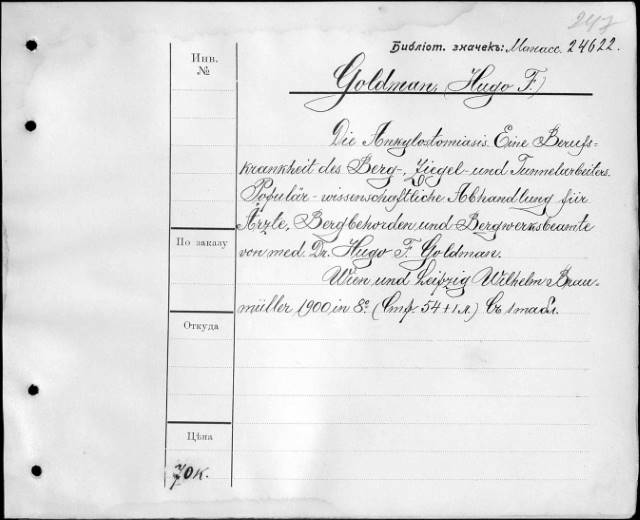 247
Библіот. значекъ: Манасс. 24622.
Инв.
№
Goldman, (Hugo F.)
Die Ankylostomiasis. Eine Berufs-
krankheit des Berg-, Ziegel- und Tunnelarbeiters.
Populär-wissenschaftliche Abhandlung für
Ärzte, Bergbehorden und Bergwerksbeamte
По заказу
von med. Dr. Hugo F. Goldman.
Wien und Leipzig Wilhelm Brau-
müller 1900, in 8º. (Стр. 54 + 1 л.) Съ 1 табл.
Откуда
Цѣна
70 к.